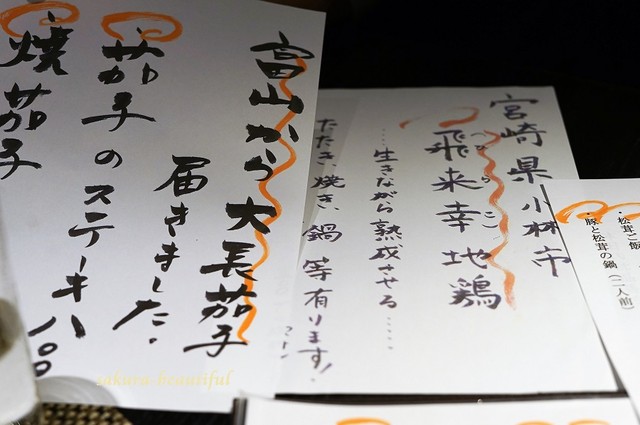 富山から大長茄子
届きました。
茄子のステーキ 八〇〇
焼茄子
宮崎県小林市
飛来幸地鶏
ひらこ
……生きながら熟成させる……
たたき、焼き、鍋等有ります！
・松茸ご飯
・豚と松茸の鍋(二人前)
sakura-beautiful